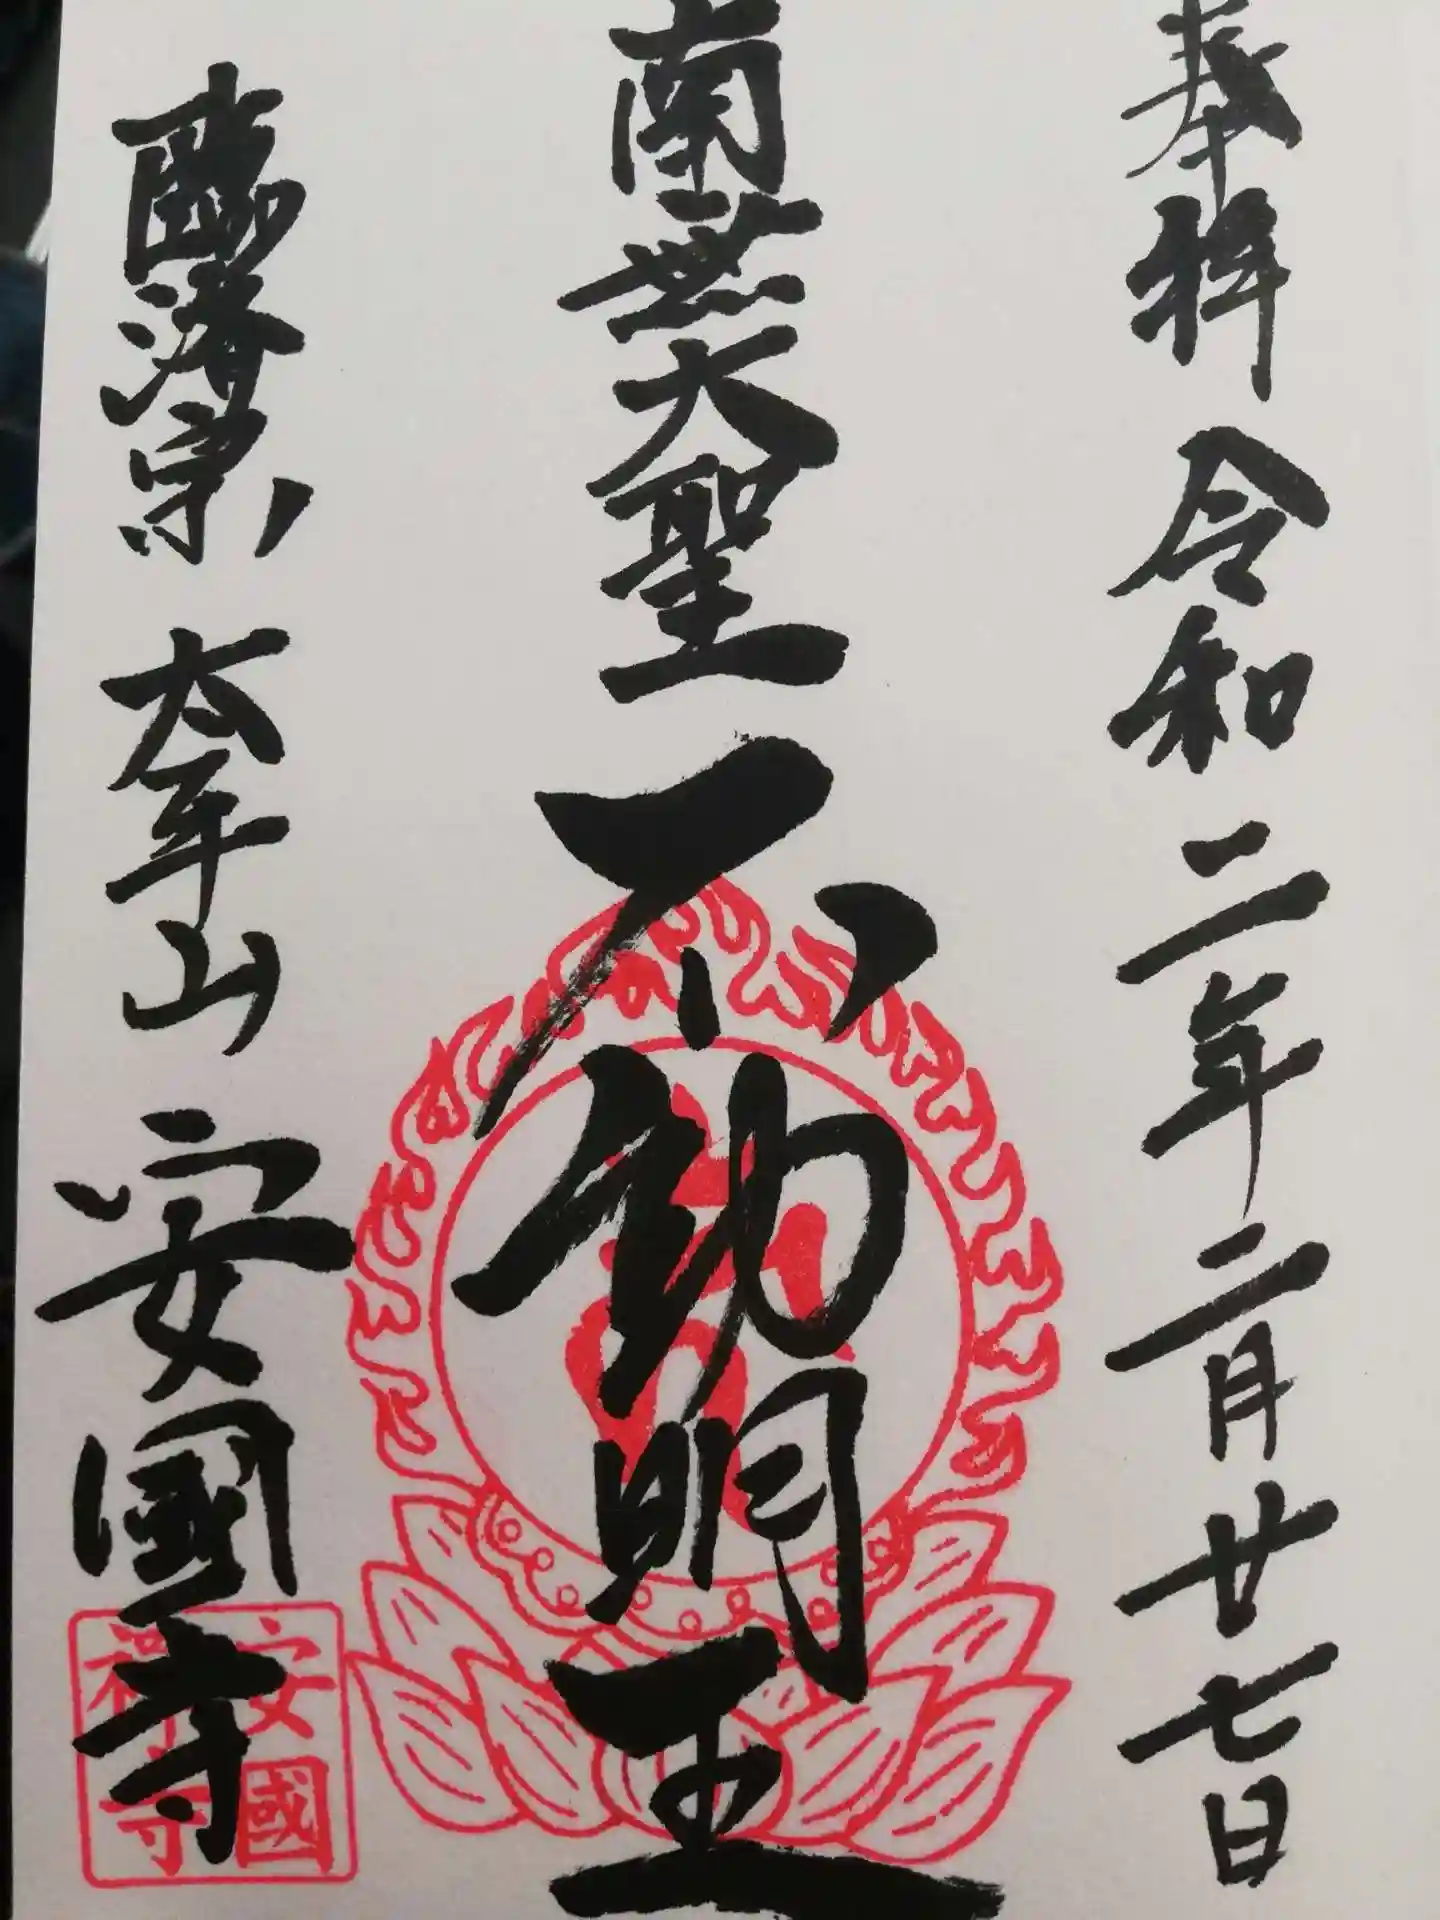 奉拝 令和二年二月廿七日
南無大聖不動明王
臨済宗 太平山 安國寺
安國禅寺